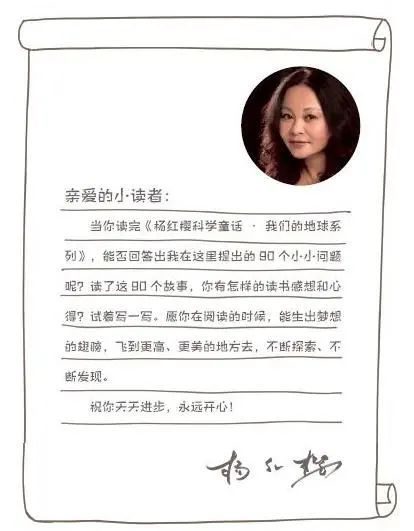 亲爱的小读者：
当你读完《杨红樱科学童话·我们的地球系
列》，能否回答出我在这里提出的80个小小问题
呢？读了这80个故事，你有怎样的读书感想和心
得？试着写一写。愿你在阅读的时候，能生出梦想
的翅膀，飞到更高、更美的地方去，不断探索、不
断发现。
祝你天天进步，永远开心！
杨红樱